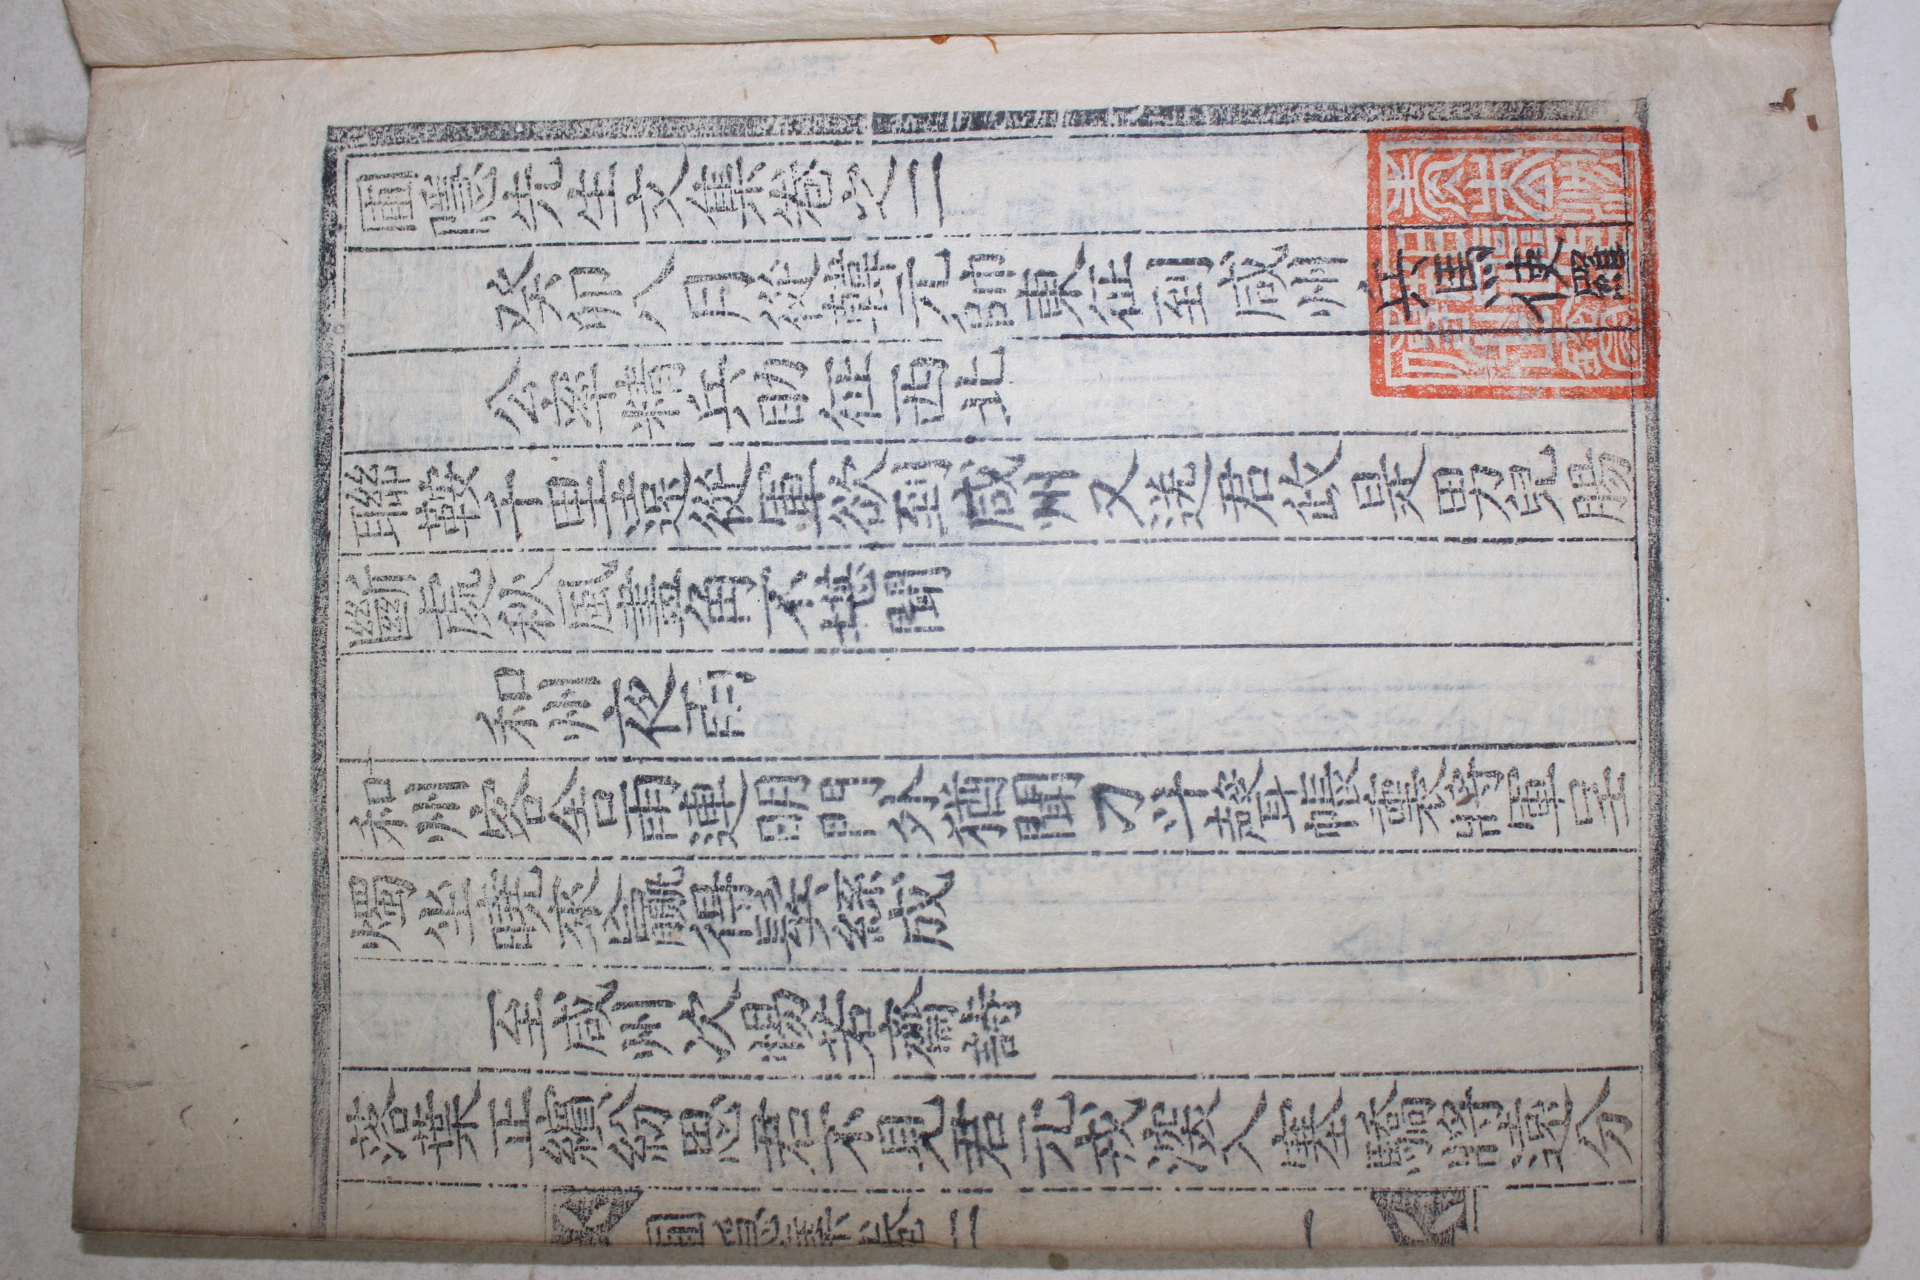 圃隱先生文集卷之二
癸卯八月從韓元帥東征到咸州兵馬使羅
公率精兵助征西北
聯鞍千里遠從軍欲到咸州又送君政是男兒腸
斷處秋風畫角不堪聞
和州夜雨
和州客舍雨連明門外猶聞刁斗聲帳裏將軍呈
燭坐曉來贏得鬂絲成
至咸州次惕若齋詩
落葉正繽紛思君不見君元戎深入塞驕將遠分
圃隱集卷二
一